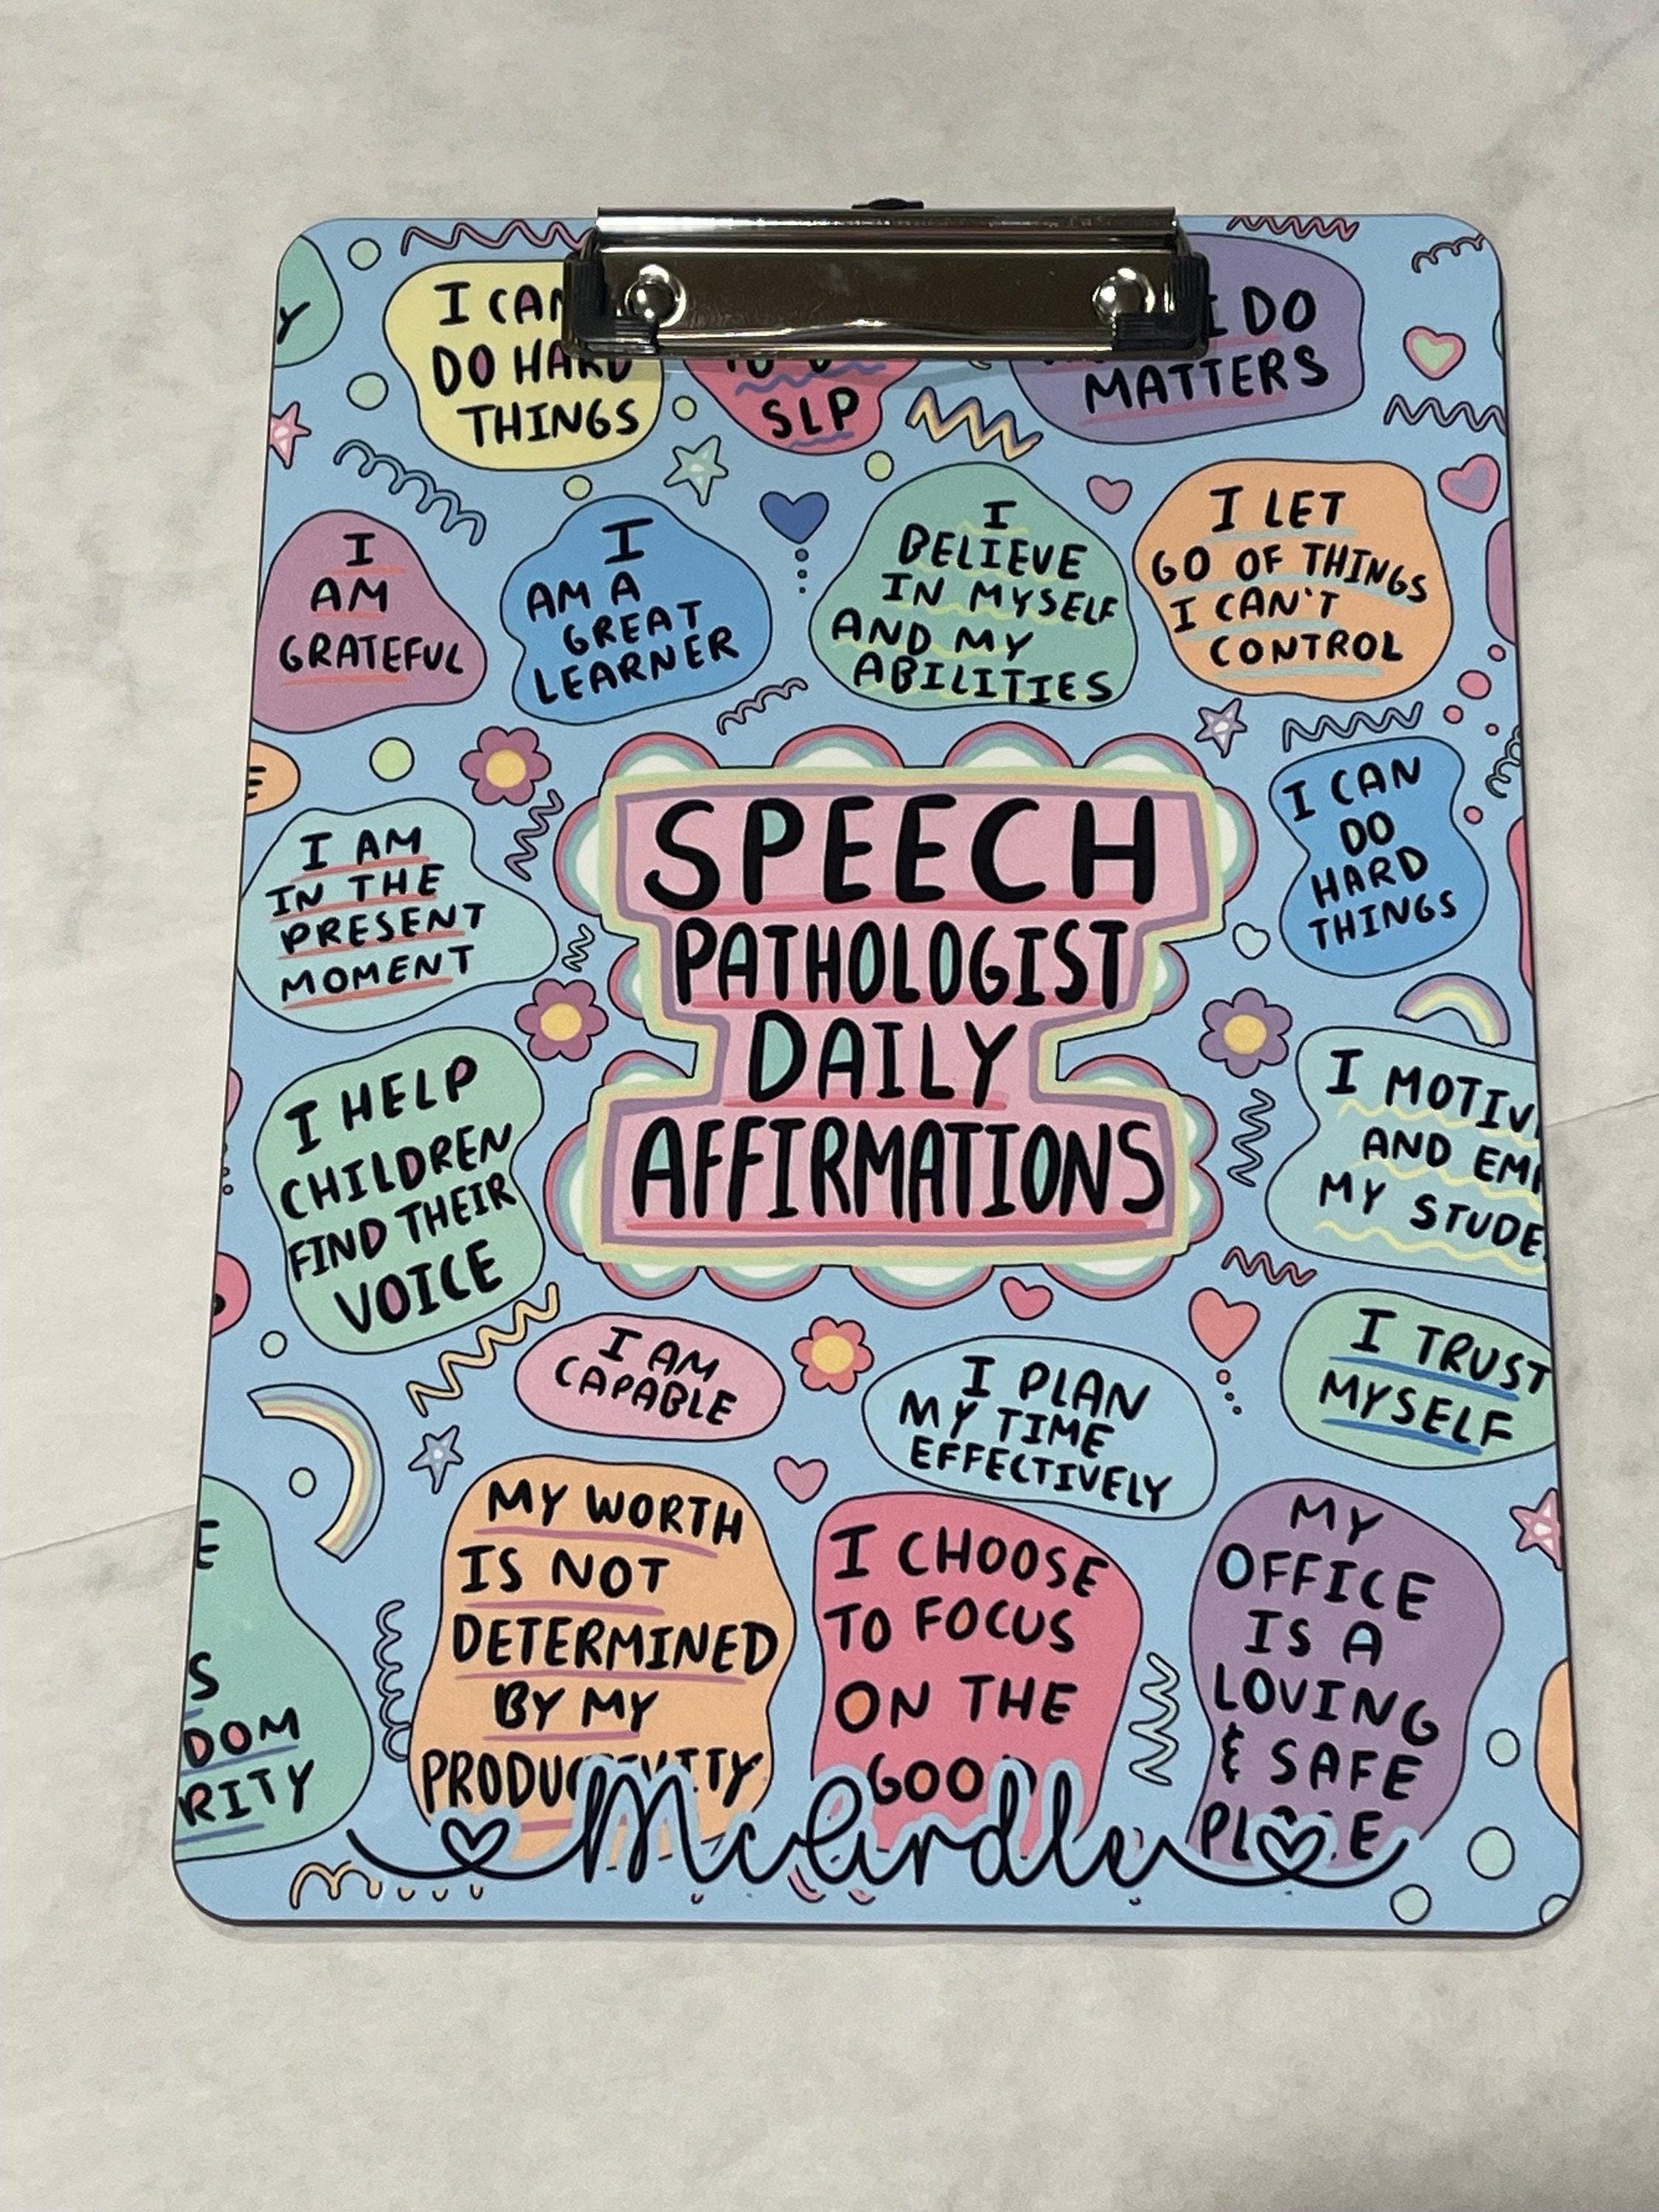 I CAN
DO HARD
THINGS
SLP
I DO
MATTERS
I
AM
GRATEFUL
I
AM A
GREAT
LEARNER
I
BELIEVE
IN MYSELF
AND MY
ABILITIES
I LET
GO OF THINGS
I CAN'T
CONTROL
I AM
IN THE
PRESENT
MOMENT
SPEECH
PATHOLOGIST
DAILY
AFFIRMATIONS
I CAN
DO
HARD
THINGS
I HELP
CHILDREN
FIND THEIR
VOICE
I MOTIV
AND EM
MY STUDE
I AM
CAPABLE
I PLAN
MY TIME
EFFECTIVELY
I TRUST
MYSELF
E
S
DOM
RITY
MY WORTH
IS NOT
DETERMINED
BY MY
PRODUCTIVITY
I CHOOSE
TO FOCUS
ON THE
GOOD
MY
OFFICE
IS A
LOVING
& SAFE
PLACE
McCardle